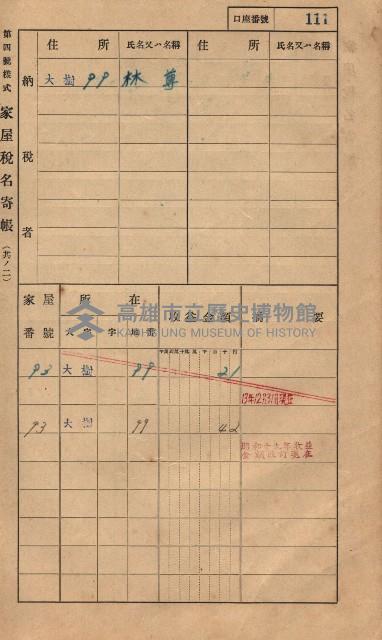 口座番號 111
第四號樣式 家屋稅名寄帳 (其ノ二)
納稅者
住所 氏名又ハ名稱 住所 氏名又ハ名稱
大樹 99 林
家屋番號 家屋所在 收益金額 摘要
大字 字 地番
93 大樹 99 21
93 大樹 99 42
昭和十九年收益
金額改訂現在
高雄市立歷史博物館
KAOHSIUNG MUSEUM OF HISTORY